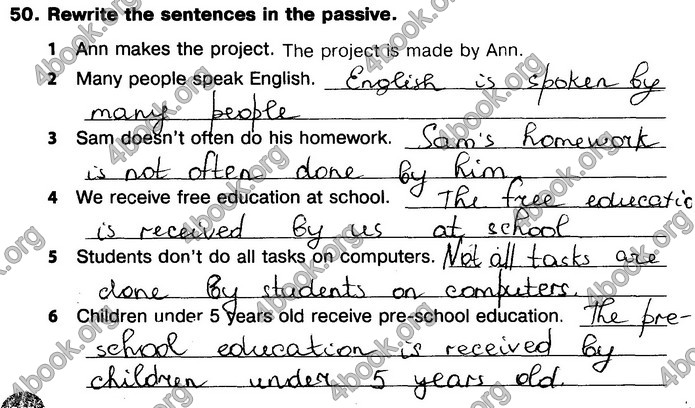 50. Rewrite the sentences in the passive.
1 Ann makes the project. The project is made by Ann.
2 Many people speak English. English is spoken by
many people
3 Sam doesn't often do his homework. Sam's homework
is not often done by him
4 We receive free education at school. The free educatio
is received by us at school
5 Students don't do all tasks on computers. Not all tasks are
done by students on computers.
6 Children under 5 years old receive pre-school education. The pre-
school education is received by
children under 5 years old.
4book.org
4book.org
4book.org
4book.org
4book.org
4book.org
4book.org
4book.org